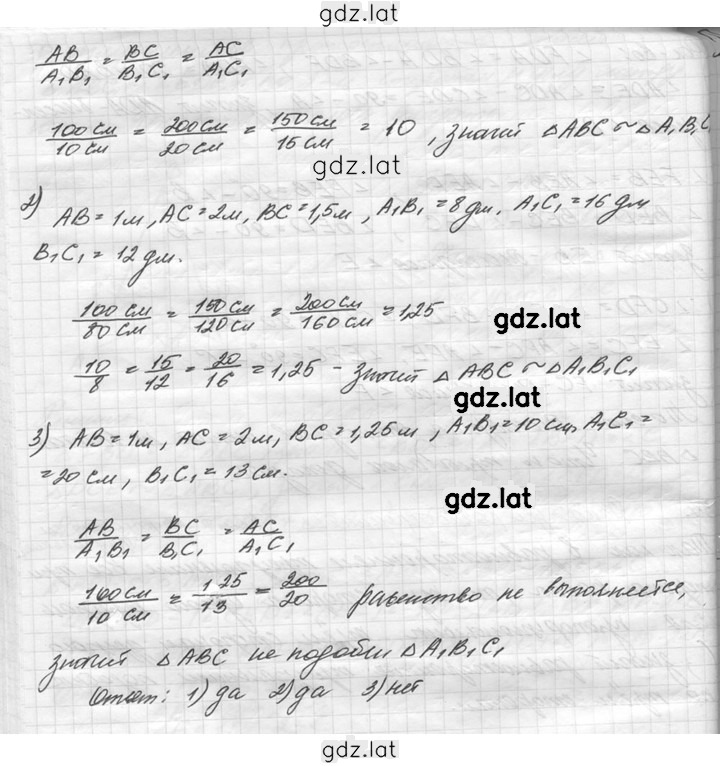 gdz.lat
AB/A₁B₁ = BC/B₁C₁ = AC/A₁C₁
100 см/10 см = 200 см/20 см = 150 см/15 см = 10 , значит △ABC ~ △A₁B₁C₁
gdz.lat
2)
AB = 1м, AC = 2м, BC = 1,5м , A₁B₁ = 8 дм. A₁C₁ = 16 дм
B₁C₁ = 12 дм.
100 см/80 см = 150 см/120 см = 200 см/160 см = 1,25
gdz.lat
10/8 = 15/12 = 20/16 = 1,25 - значит △ABC ~ △A₁B₁C₁
gdz.lat
3) AB = 1м, AC = 2м, BC = 1,25м , A₁B₁ = 10 см, A₁C₁ =
= 20 см, B₁C₁ = 13 см.
gdz.lat
AB/A₁B₁ = BC/B₁C₁ = AC/A₁C₁
100 см/10 см = 125/13 = 200/20 равенство не выполняется,
значит △ABC не подобен △A₁B₁C₁
Ответ: 1) да 2) да 3) нет
gdz.lat